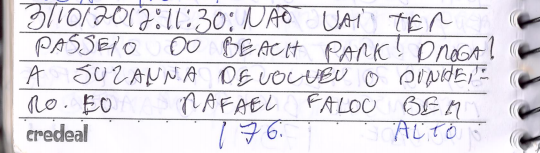 3/10/2012:11:30: NAO VAI TER
PASSEIO DO BEACH PARK! DROGA!
A SUZANNA DEVOLVEU O DINHEI-
RO. EO RAFAEL FALOU BEM
credeal 176 ALTO